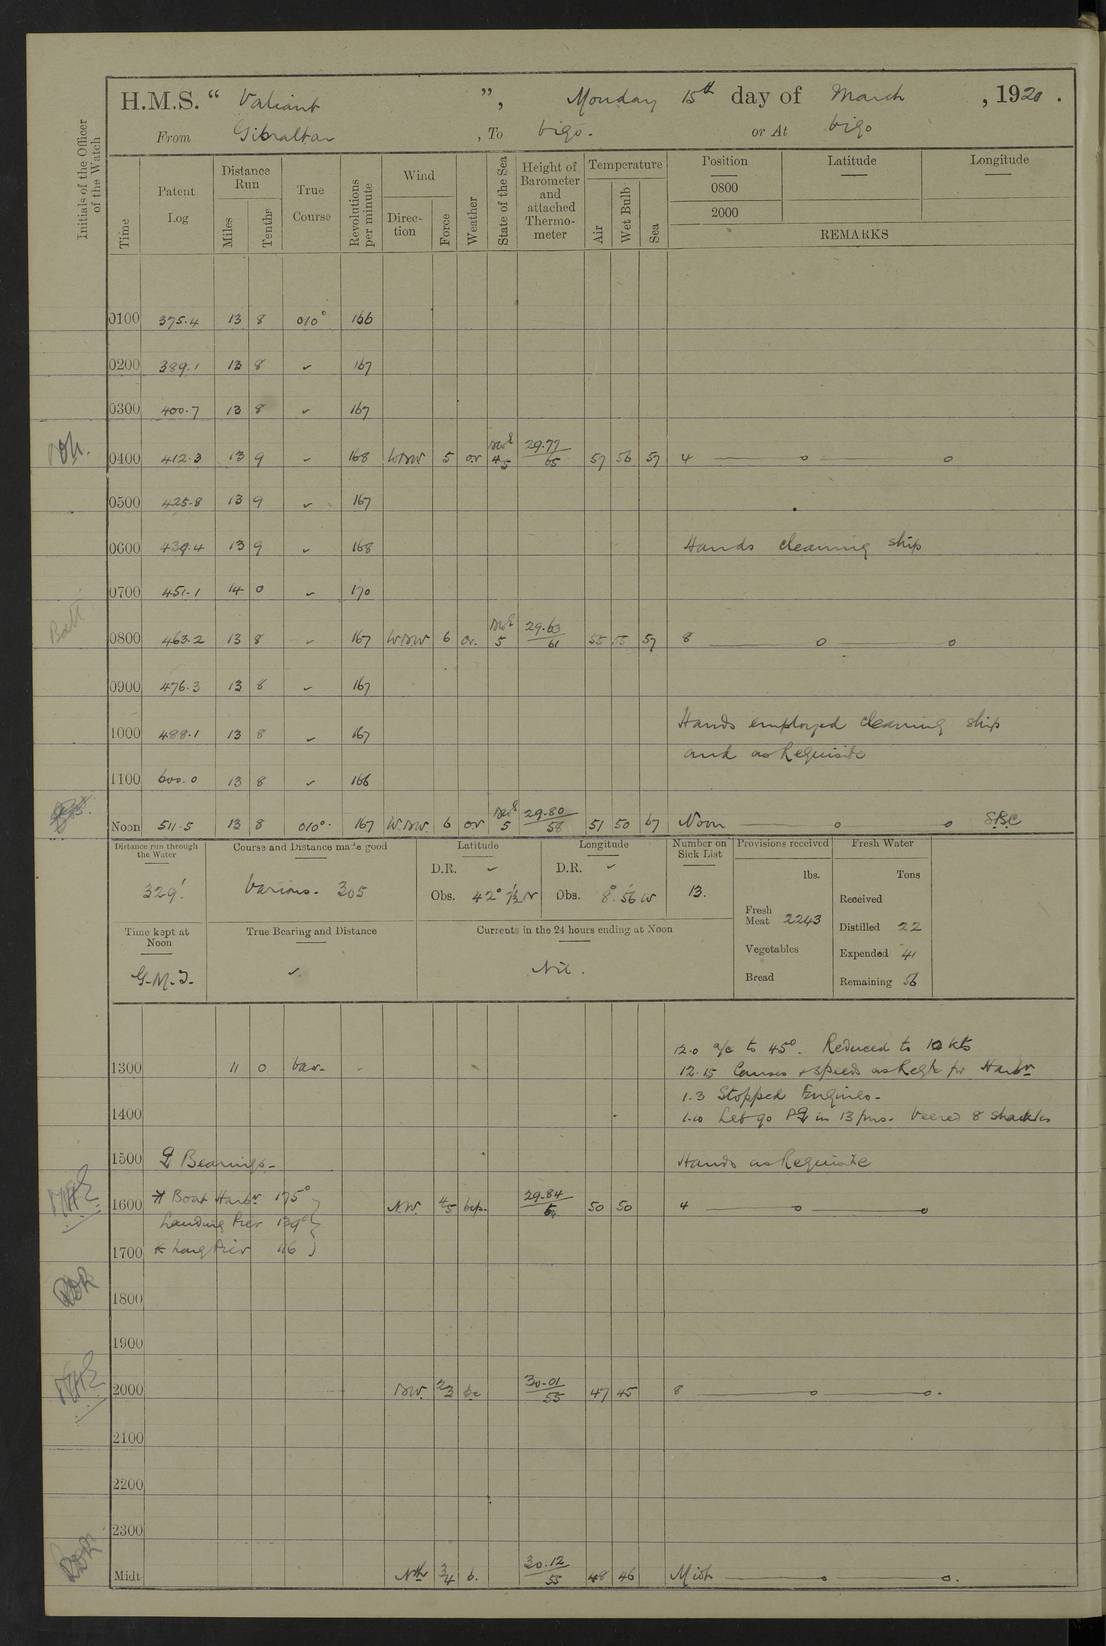 H.M.S. “ Valiant ”, Monday 15th day of March , 1920 .
From Gibraltar , To Vigo . or At Vigo
Initials of the Officer of the Watch
Time
Patent Log
Distance Run
Miles
Tenths
True Course
Revolutions per minute
Wind
Direc-tion
Force
Weather
State of the Sea
Height of Barometer and attached Thermo-meter
Temperature
Air
Wet Bulb
Sea
Position
Latitude
Longitude
0800
2000
REMARKS
0100 375.4 13 8 010° 166
0200 389.1 13 8 ✓ 167
0300 400.7 13 8 ✓ 167
0400 412.3 13 9 ✓ 168 WNW 5 or 45 29.77 65 57 56 57 4
0500 425.8 13 9 ✓ 167
0600 439.4 13 9 ✓ 168 Hands cleaning ship
0700 451.1 14 0 ✓ 170
0800 463.2 13 8 ✓ 167 WNW 6 or. 5 29.63 61 55 55 57 8
0900 476.3 13 8 ✓ 167
1000 488.1 13 8 ✓ 167 Hands employed cleaning ship
and as Requisite
1100 600.0 13 8 ✓ 166
Noon 511.5 13 8 010° 167 W.NW. 6 or 5 29.80 58 51 50 57 Noon
Distance run through the Water
329'
Course and Distance made good
Various. 305
Latitude
D.R. ✓
Obs. 42° 7½ N
Longitude
D.R. ✓
Obs. 8° 56 W
Number on Sick List
13.
Provisions received
lbs.
Fresh Meat 2243
Vegetables
Bread
Fresh Water
Tons
Received
Distilled 22
Expended 41
Remaining 56
Time kept at Noon
G.M.T.
True Bearing and Distance
✓
Currents in the 24 hours ending at Noon
Nil.
12.0 a/c to 45°. Reduced to 12 kts
1300 11 0 Var. 12.15 Courses + speeds as Reqte for Harbr
1.3 Stopped Engines.
1400 1.10 Let go in 13 fms. Veered 8 shackles
1500 Bearings. Hands as Requisite
1600 Boat Harbr 175° N.W. 4/5 bcp. 29.84 50 50 4
Landing Pier 139°
1700 Long Pier 116
1800
1900
2000 NW. 2/3 bc 30.01 55 47 45 8
2100
2200
2300
Midt Nth 3/4 b. 30.12 55 48 46 Midt